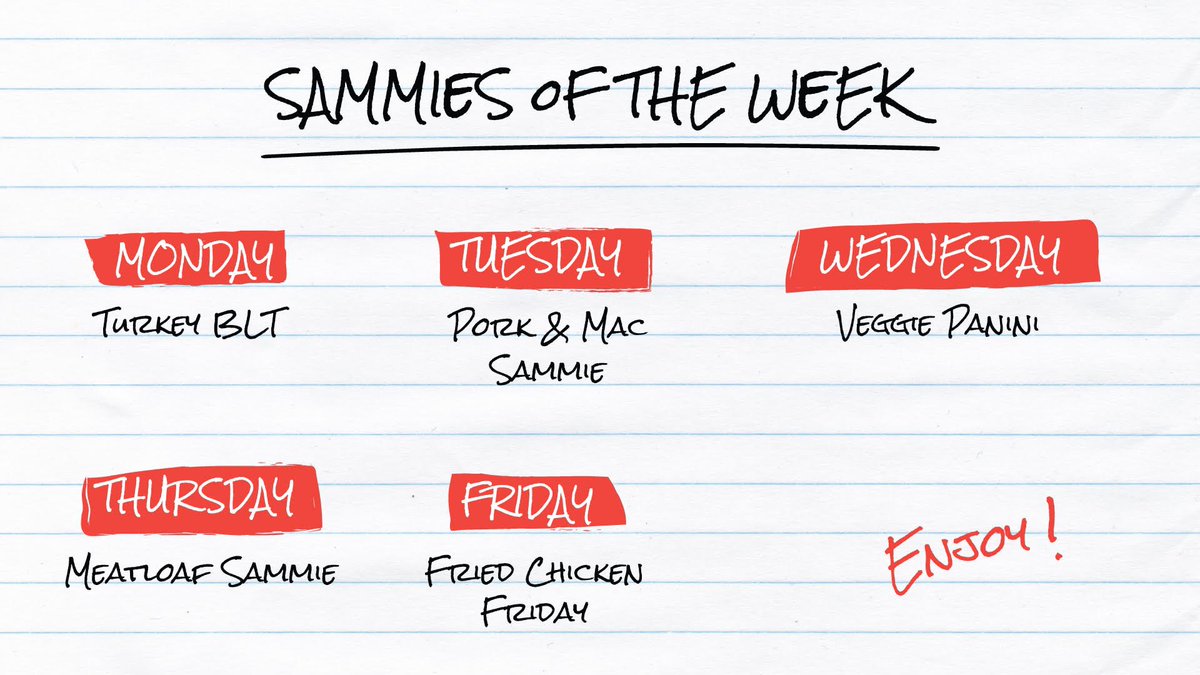 SAMMIES OF THE WEEK
MONDAY
TURKEY BLT
TUESDAY
PORK & MAC
SAMMIE
WEDNESDAY
VEGGIE PANINI
THURSDAY
MEATLOAF SAMMIE
FRIDAY
FRIED CHICKEN
FRIDAY
ENJOY!